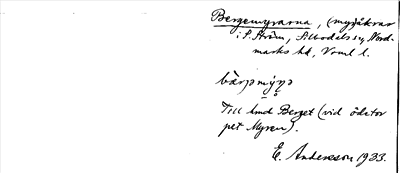 Bergemyrarna, (myråkrar
i S. Ström, Silbodals sn, Nord-
marks hd, Vrml l.
Till hmd Berget (vid ödetor
pet Myren).
E. Andersson 1933.